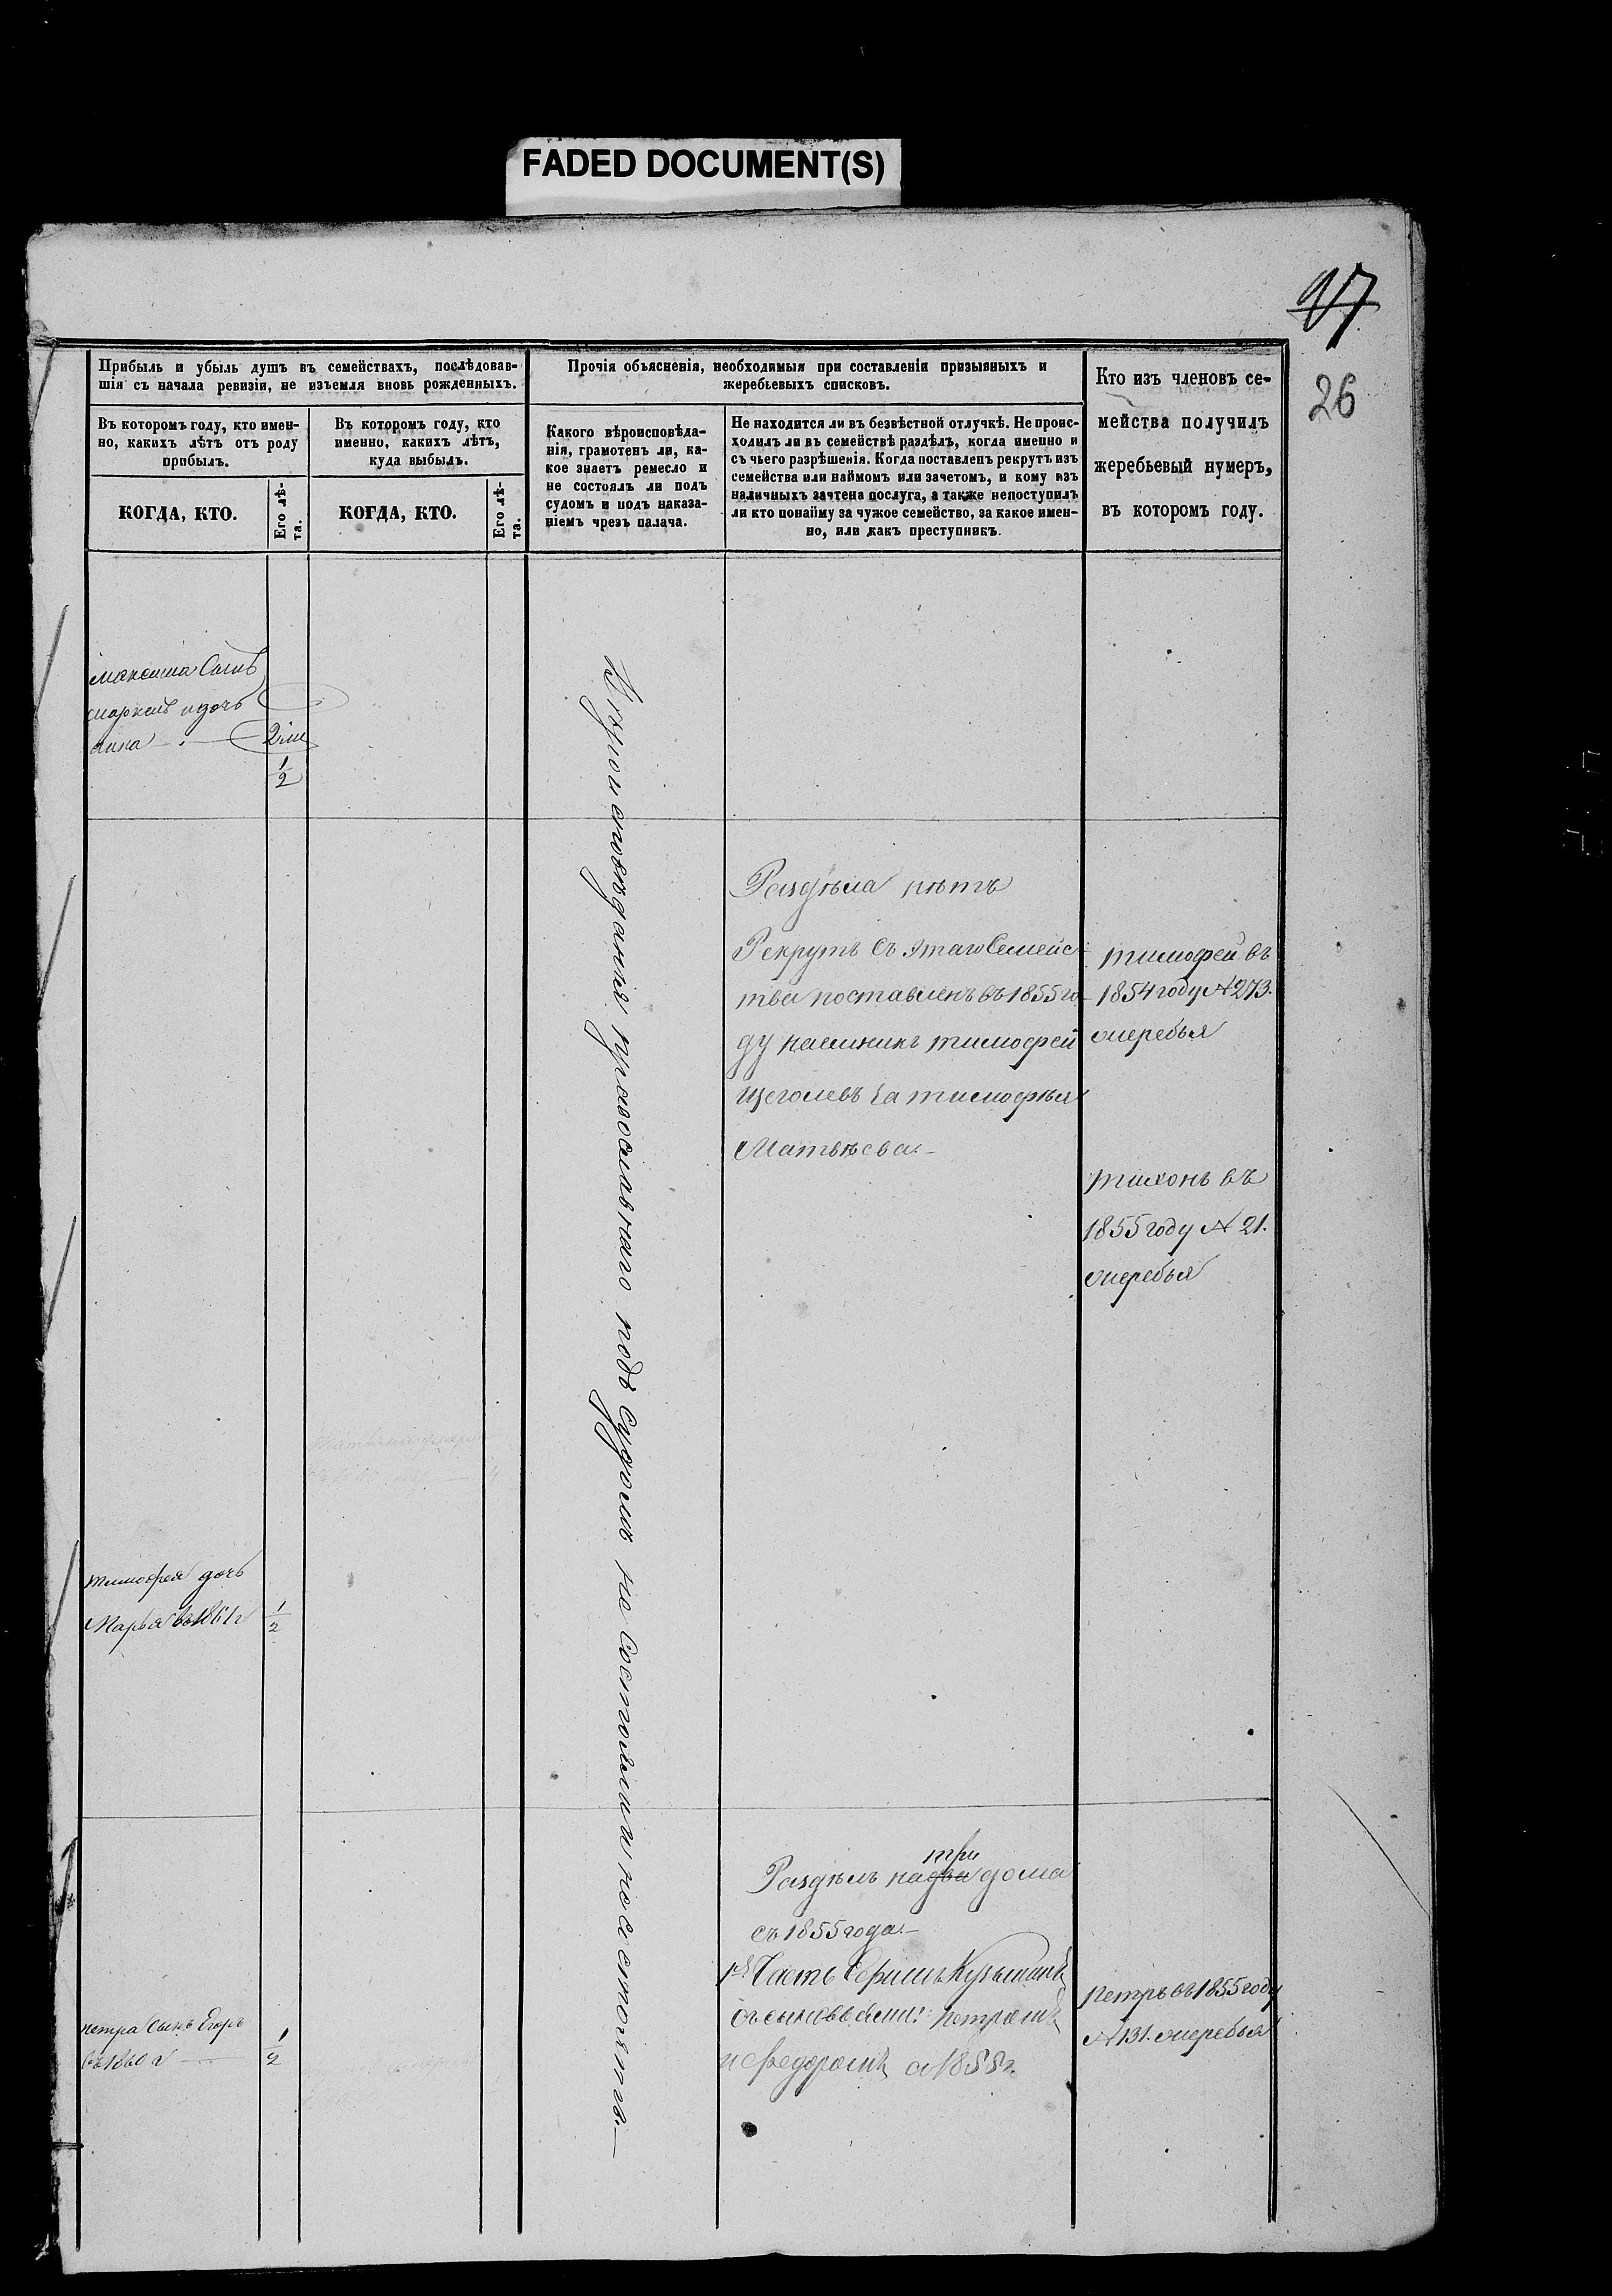 FADED DOCUMENT(S)
17
26
Прибыль и убыль душъ въ семействахъ, послѣдовав-
шія съ начала ревизіи, не изъемля вновь рожденныхъ.
Въ которомъ году, кто имен-
но, какихъ лѣтъ отъ роду
прибылъ.
КОГДА, КТО.
Его лѣ-
та.
Въ которомъ году, кто
именно, какихъ лѣтъ,
куда выбылъ.
КОГДА, КТО.
Его лѣ-
та.
Прочія объясненія, необходимыя при составленіи призывныхъ и
жеребьевыхъ списковъ.
Какого вѣроисповѣда-
нія, грамотенъ ли, ка-
кое знаетъ ремесло и
не состоялъ ли подъ
судомъ и подъ наказа-
ніемъ чрезъ палача.
Не находится ли въ безвѣстной отлучкѣ. Не проис-
ходилъ ли въ семействѣ раздѣлъ, когда именно и
съ чьего разрѣшенія. Когда поставленъ рекрутъ изъ
семейства или наймомъ или зачетомъ, и кому изъ
наличныхъ зачтена послуга, а также непоступилъ
ли кто понайму за чужое семейство, за какое имен-
но, или какъ преступникъ.
Кто изъ членовъ се-
мейства получилъ
жеребьевый нумеръ,
въ которомъ году.
максима Сынъ
маркелъ идочь
анна
1/2
Вѣроисповѣданія православнаго подъ Судомъ не Состояли и несостоятъ.—
Раздѣла нѣтъ
Рекрутъ Съ этаго Семейс-
тва поставленъ въ 1855 го-
ду наемникъ тимофей
Щеголевъ за тимофѣя
Матвѣева.—
тимофей въ
1854 году № 273.
жеребья
тихонъ въ
1855 году № 21.
жеребья
тимофея дочь
Марья въ 1861 г
1/2
три
Раздѣлъ надва дома
съ 1855 года.—
1я Часть Ефимъ Кузьминъ
съ сыновьями: Петромъ
и Федоромъ с 1858 г.
Петръ въ 1855 году
№ 131. жеребья
петра Сынъ Егоръ
въ 1860 г
1/2